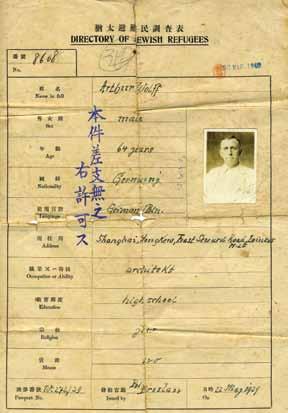 猶太避難民調査表
DIRECTORY OF JEWISH REFUGEES
番號 8608
No.
姓名
Name in full
Arthur Wolff
男女別
Sex
male
年齡
Age
64 years
國籍
Nationality
Germany
使用言語
Language
German
現住所
Address
Shanghai, Hongkew, East Seward Road,
職業又ハ特技
Occupation or Ability
architekt
教育程度
Education
high school
宗教
Religion
jew
資産
Means
旅券番號
Passport No.
發給官廳
Issued by
Breslau
日時
22 May 1939
本件差支無之
右許可ス